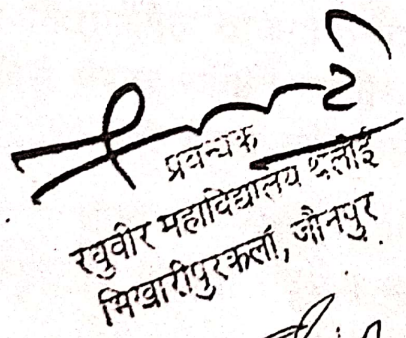 प्रबन्धक
रघुवीर महाविद्यालय थलोई
भिखारीपुरकलाँ, जौनपुर